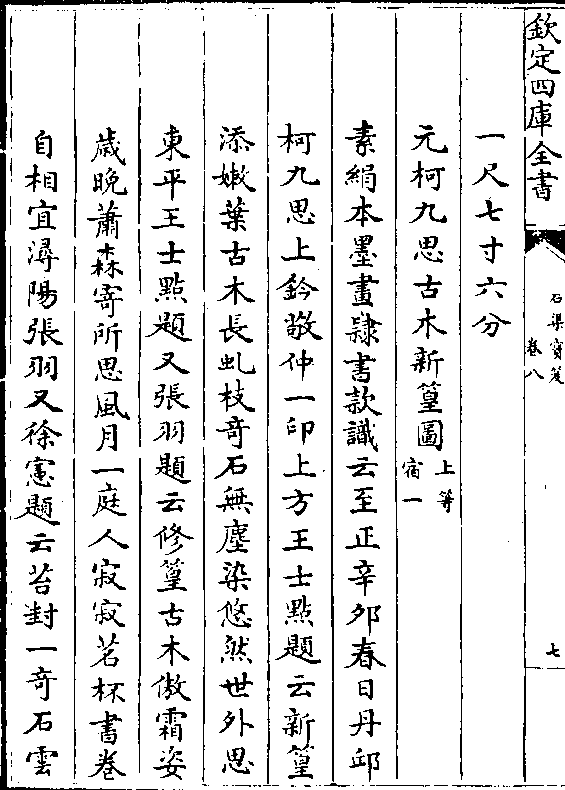 欽定四庫全書
石渠寶笈
卷八
七
一尺七寸六分
元柯九思古木新篁圖上等宿一
素絹本墨畫隸書款識云至正辛夘春日丹邱
柯九思上鈐敬仲一印上方王士點題云新篁
添嫩葉古木長虬枝奇石無塵染悠然世外思
東平王士點題又張羽題云修篁古木傲霜姿
歲晚蕭森寄所思風月一庭人寂寂茗杯書卷
自相宜潯陽張羽又徐憲題云苔封一奇石雲